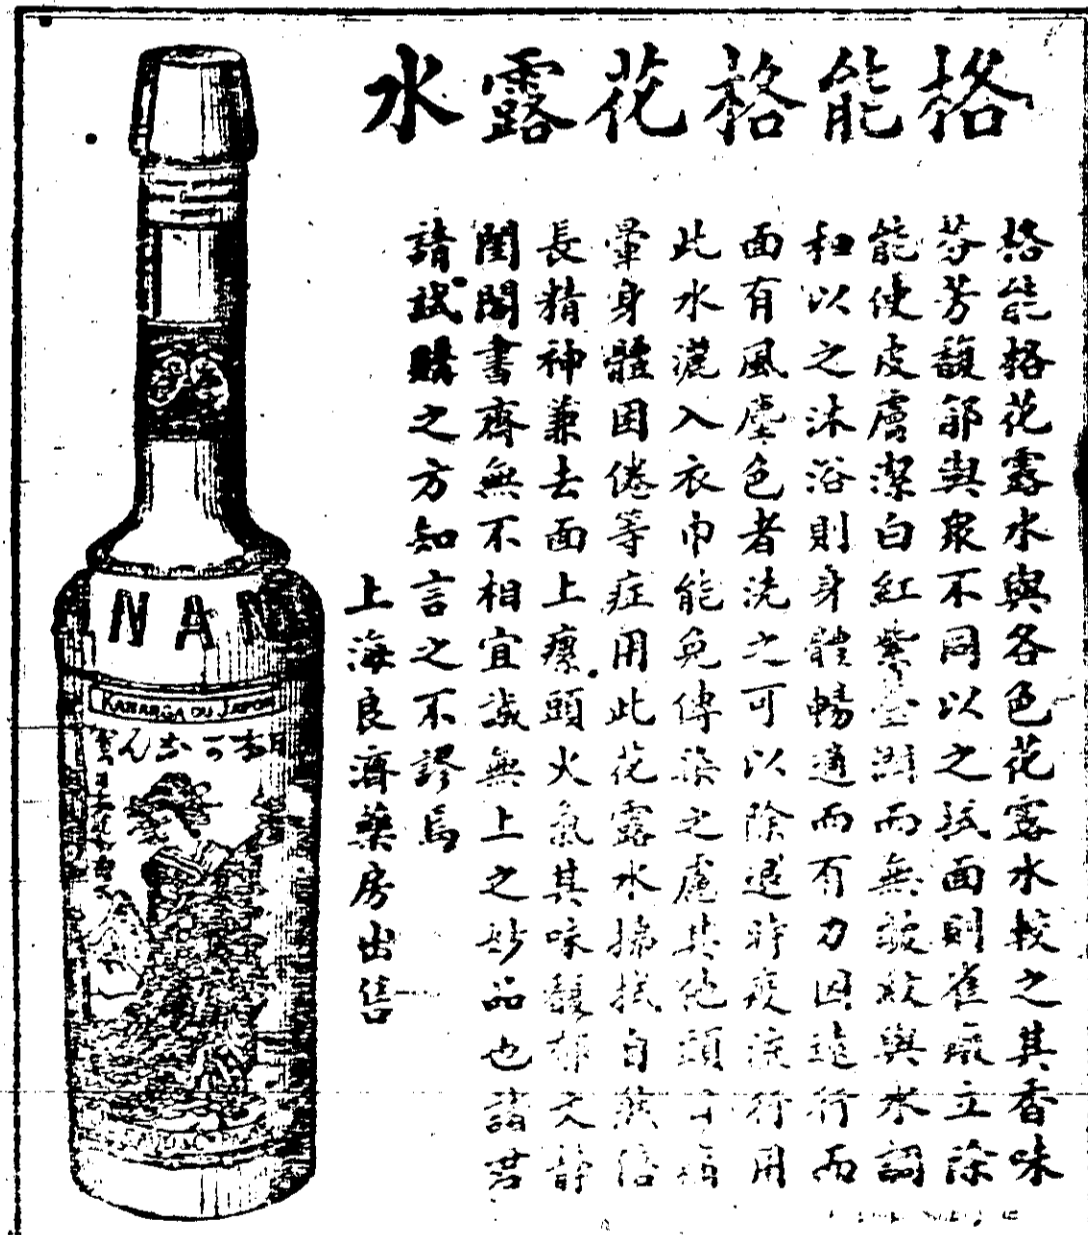 格能格花露水
格能格花露水與各色花露水較之其香味
芬芳馥郁與衆不同以之搽面則雀瘢立除
能使皮膚潔白紅紫瑩潤而無皺紋與水調
和以之沐浴則身體暢適而有力因遠行而
面有風塵色者洗之可以除退時疫流行用
此水灑入衣巾能免傳染之慮其他頭
暈身體困倦等症用此花露水揩拭自然倍
長精神兼去面上瘰頭火氣其味馥郁文靜
閨閣書齋無不相宜誠無上之妙品也諸君
請試購之方知言之不謬焉
上海良濟藥房出售
NAN
KANANGA DU JAPON